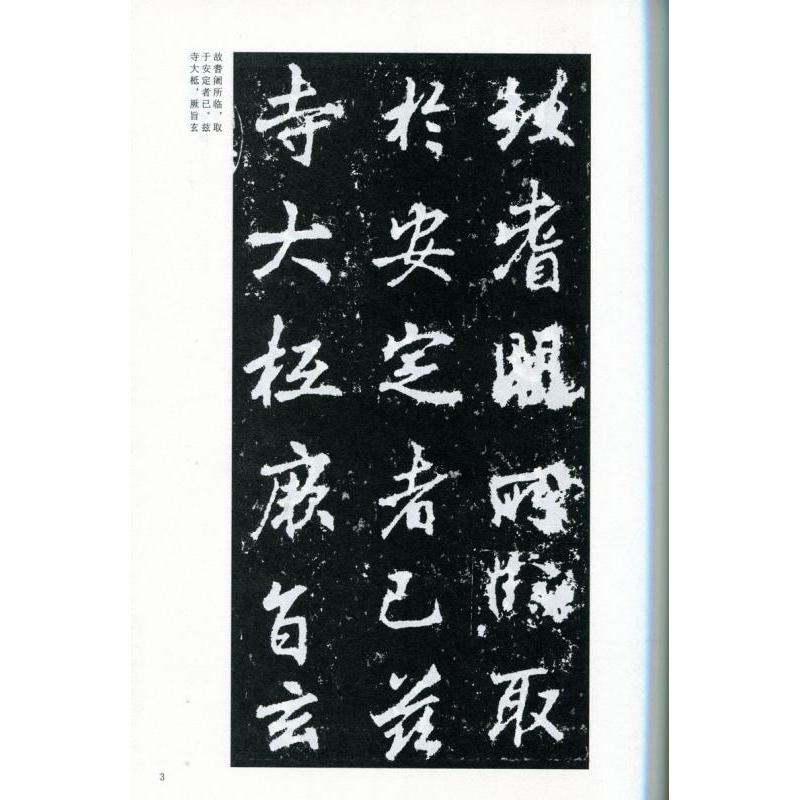 故耆闍所臨取
於安定者已兹
寺大柢厥旨玄
故耆阇所临，取
于安定者已。兹
寺大柢，厥旨玄
3